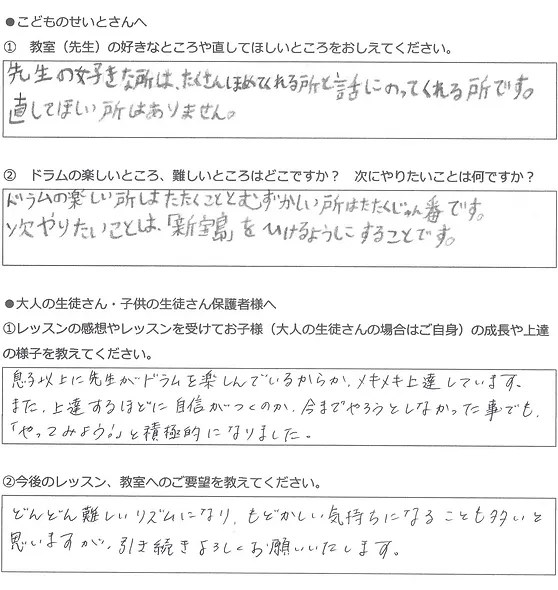 ●こどものせいとさんへ
① 教室（先生）の好きなところや直してほしいところをおしえてください。
先生の好きな所は、たくさんほめてくれる所と話にのってくれる所です。
直してほしい所はありません。
② ドラムの楽しいところ、難しいところはどこですか？ 次にやりたいことは何ですか？
ドラムの楽しい所はたたくこととむずかしい所はたたくじゅん番です。
次やりたいことは、「新宝島」をひけるようにすることです。
●大人の生徒さん・子供の生徒さん保護者様へ
①レッスンの感想やレッスンを受けてお子様（大人の生徒さんの場合はご自身）の成長や上達
の様子を教えてください。
息子以上に先生がドラムを楽しんでいるからか、メキメキ上達しています。
また、上達するほどに自信がつくのか、今までやろうとしなかった事でも、
「やってみよう！」と積極的になりました。
②今後のレッスン、教室へのご要望を教えてください。
どんどん難しいリズムになり、もどかしい気持ちになることも多いと
思いますが、引き続きよろしくお願いいたします。